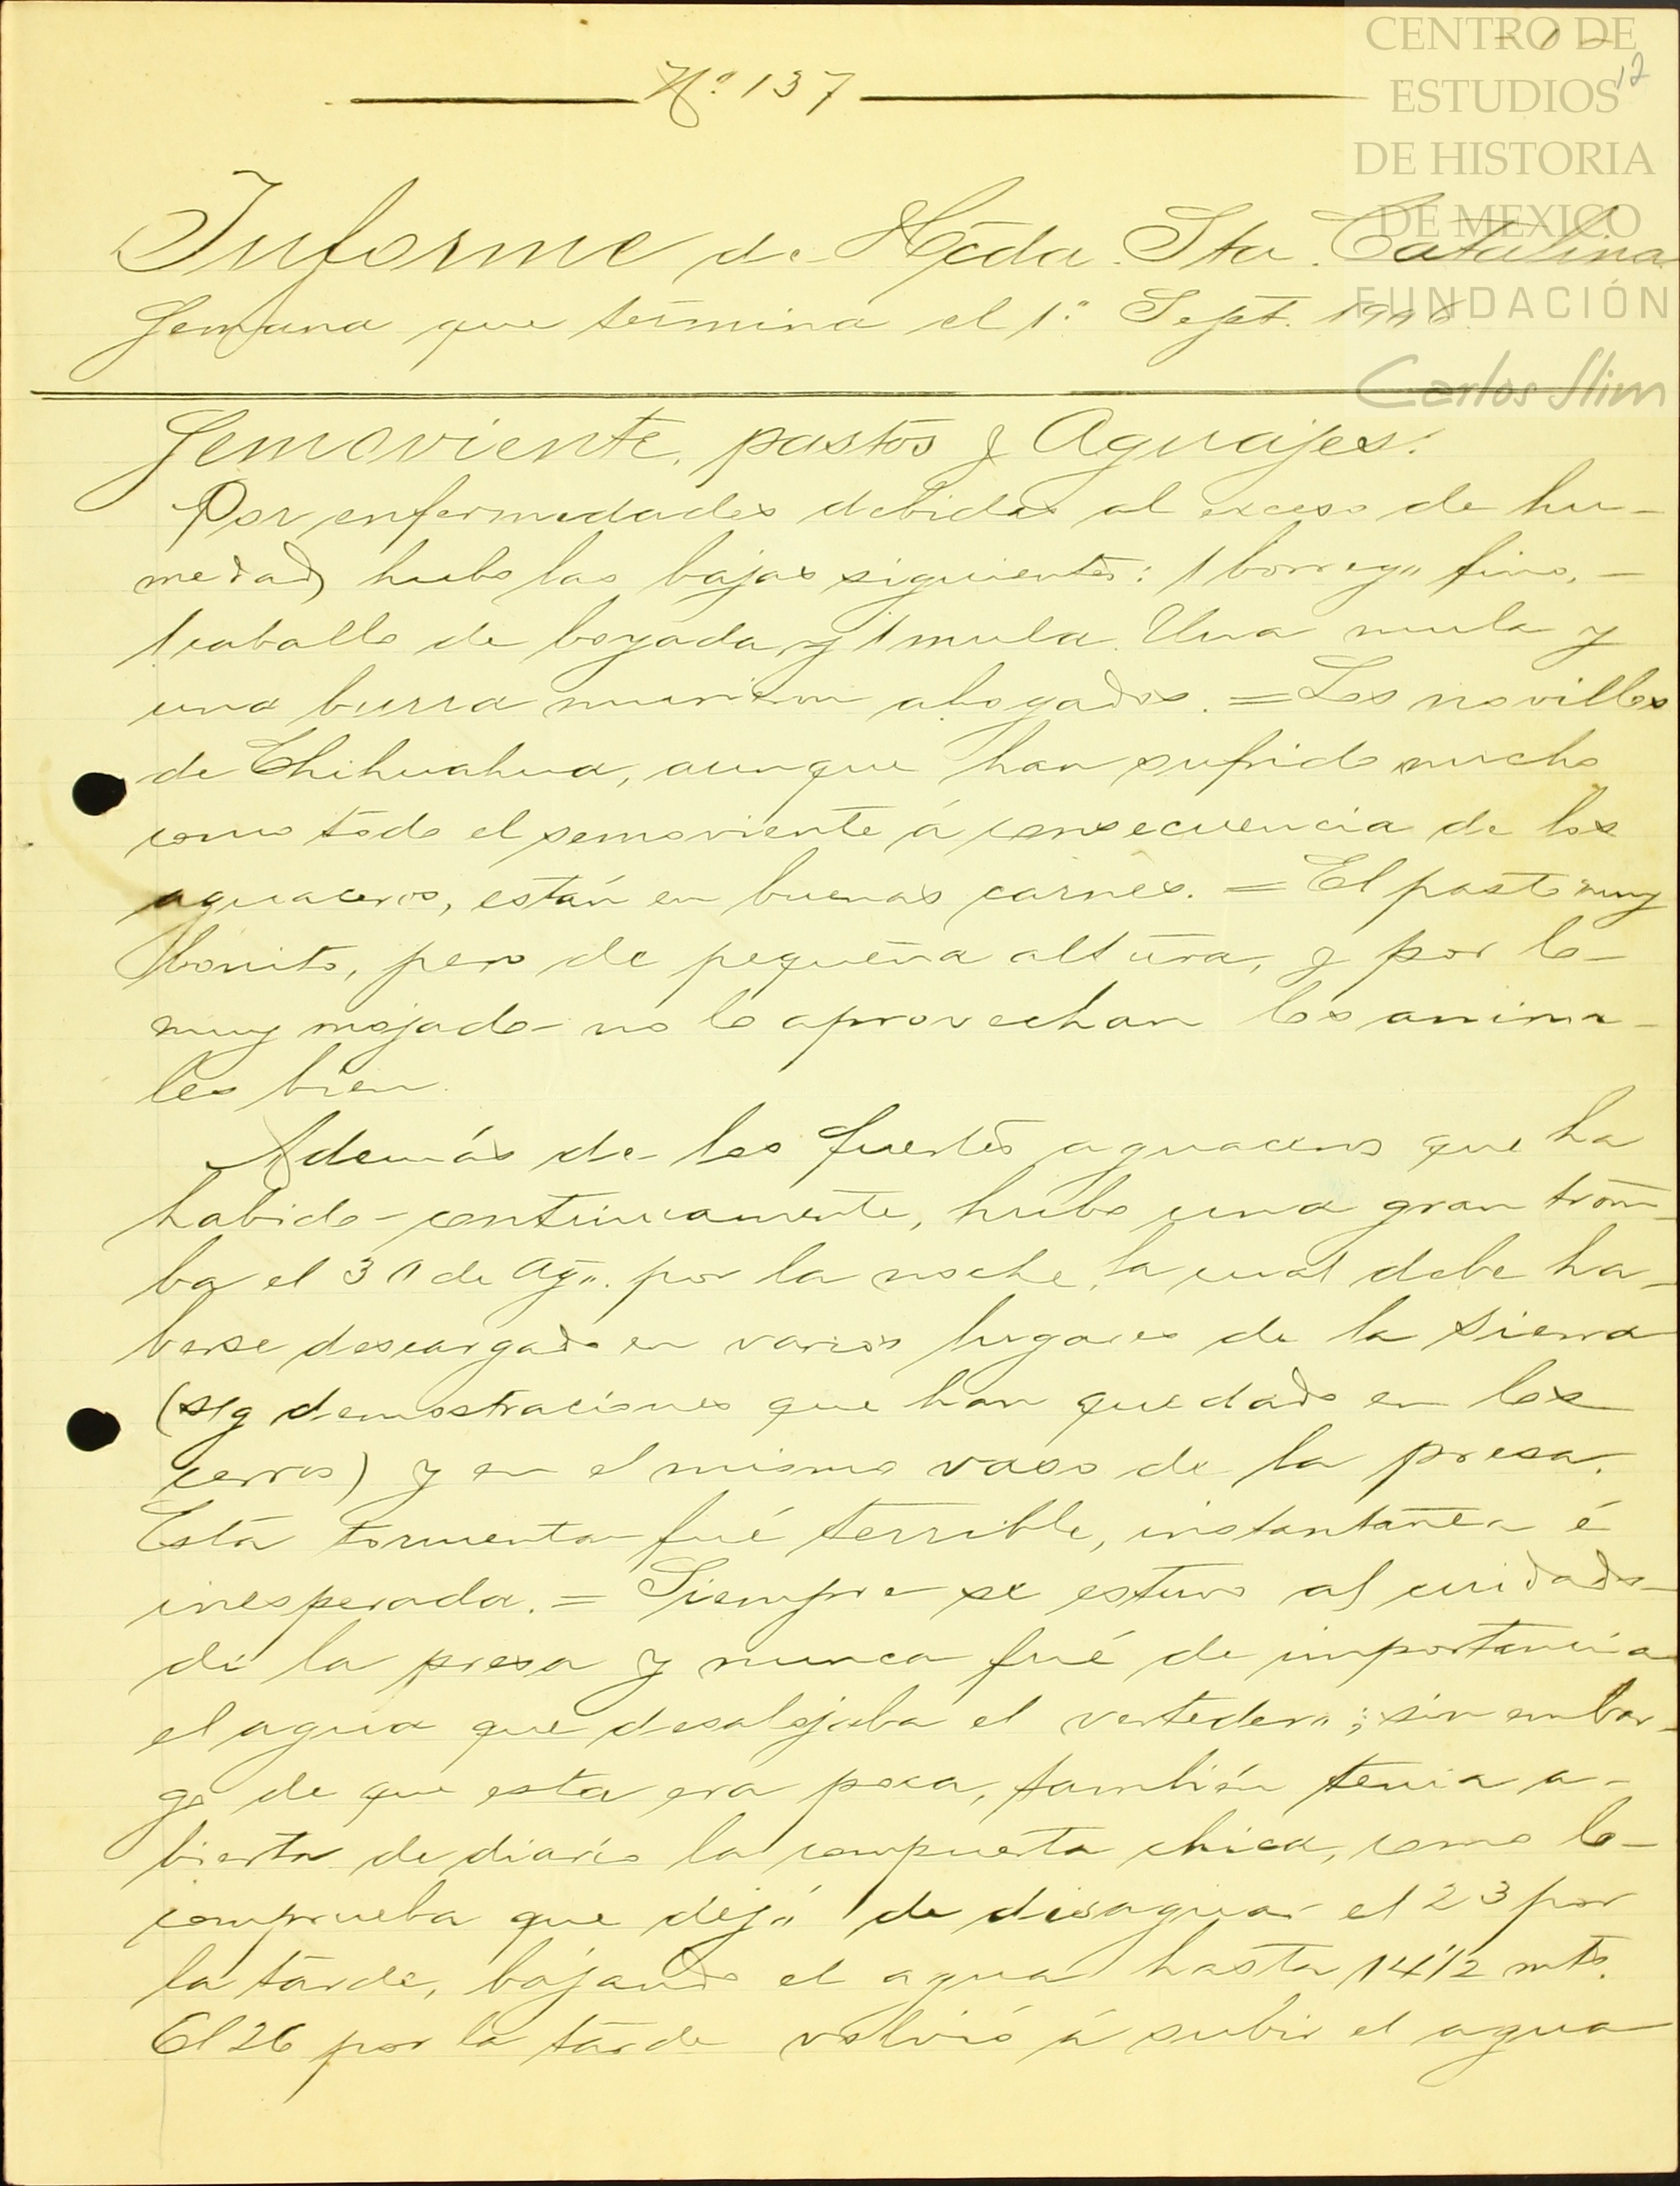 CENTRO DE
ESTUDIOS
DE HISTORIA
DE MEXICO
FUNDACIÓN
Carlos Slim
- 1 -
12
Nº 137
Informe de Hcda. Sta. Catalina
Semana que termina el 1º Sept.
Semoviente, pastos y Aguajes.
Por enfermedades debidas al exceso de hu-
medad, hubo las bajas siguientes: 1 borrego fino, -
1 caballo de boyada y 1 mula. Una mula y
una burra murieron ahogados. = Los novillos
de Chihuahua, aunque han sufrido mucho
como todo el semoviente á consecuencia de los
aguaceros, están en buenas carnes. = El pasto muy
bonito, pero de pequeña altura, y por lo-
muy mojado- no lo aprovechan los anima-
les bien.
Además de los fuertes aguaceros que ha
habido- continuamente, hubo una gran trom-
ba el 31 de Ago. por la noche, la cual debe ha-
berse descargado en varios lugares de la Sierra
(sg demostraciones que han quedado en los
cerros) y en el mismo vaso de la presa.
Esta tormenta fué terrible, instantánea é
inesperada. = Siempre se estuvo al cuidado-
de la presa y nunca fué de importancia
el agua que desalojaba el vertedero; sin embar-
go de que esta era poca, también tenia a-
bierta de diario la compuerta chica, como lo-
comprueba que dejó de desaguar el 23 por
la tarde, bajando el agua hasta 14 1/2 mts.
El 26 por la tarde volvió á subir el agua